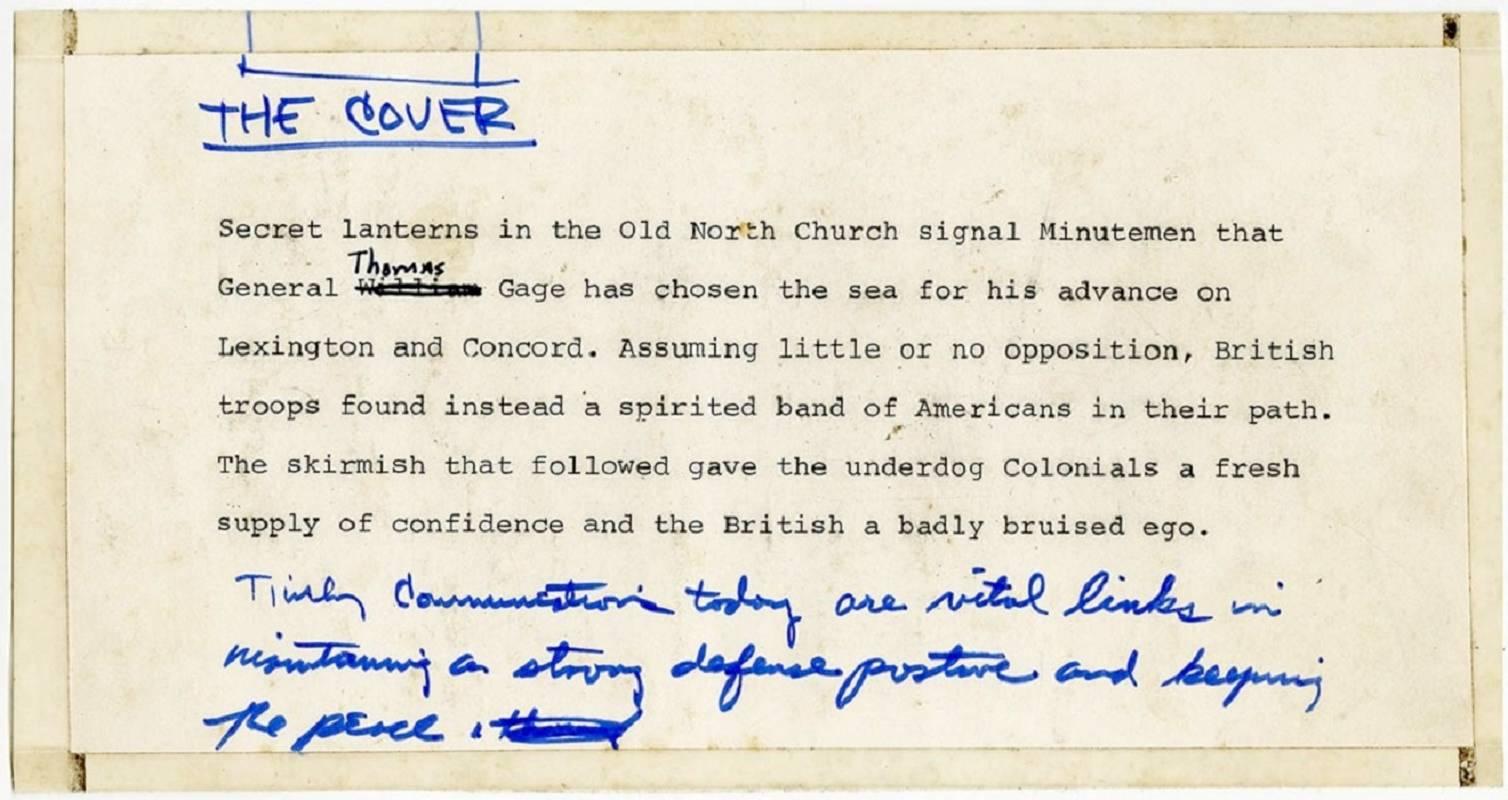 THE COVER
Secret lanterns in the Old North Church signal Minutemen that
Thomas
General William Gage has chosen the sea for his advance on
Lexington and Concord. Assuming little or no opposition, British
troops found instead a spirited band of Americans in their path.
The skirmish that followed gave the underdog Colonials a fresh
supply of confidence and the British a badly bruised ego.
Timely Communications today are vital links in
maintaining a strong defense posture and keeping
the peace.